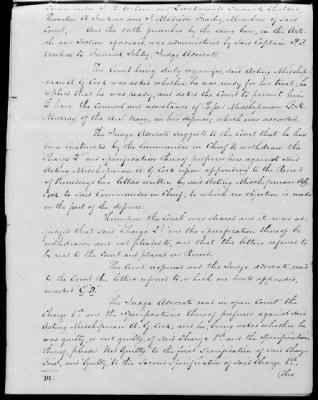 Commander S. B. and Lieutenants Frederick
Thornton A. Jenkins and J. Madison Members of said
Court, And the oath prescribed by the same law, in the Arti-
cle and Section aforesaid, was administered by said Captain P. F.
Voorhees to Judge Advocate.
The Court being duly organized, said Acting Midship-
man A. G. Cook was asked whether he was ready for his trial; he
replied that he was ready, and asks the Court to permit him
to have the Counsel and assistance of Midshipman F. K.
Murray of the U.S. Navy, in his defence, which was accorded.
The Judge Advocate suggests to the Court that he had
been instructed by the Commander in Chief to withdraw the
Charge 2d and Specification thereof preferred here against said
Acting Midshipman A. G. Cook upon appending to the Record
of Proceedings two letters written by said Acting Midshipman A. G.
Cook to said Commander in Chief, to which no objection is made
on the part of the defence.
Hereupon the Court was cleared and it was ad-
judged that said Charge 2d and the Specification thereof be
withdrawn and not pleaded to, and that the letters referred to
be read to the Court and placed on Record.
The Court reopened and the Judge Advocate read
to the Court the letters referred to, which are hereto appended,
marked C. D.
The Judge Advocate read in open Court the
Charge 1st and the Specifications thereof preferred against said
Acting Midshipman A. G. Cook, and he, being asked whether he
was guilty or not guilty of said Charge 1st and the Specifications
thereof, pleads Not Guilty to the first Specification of said Charge
first, and Guilty to the Second Specification of said Charge 1st.
(The